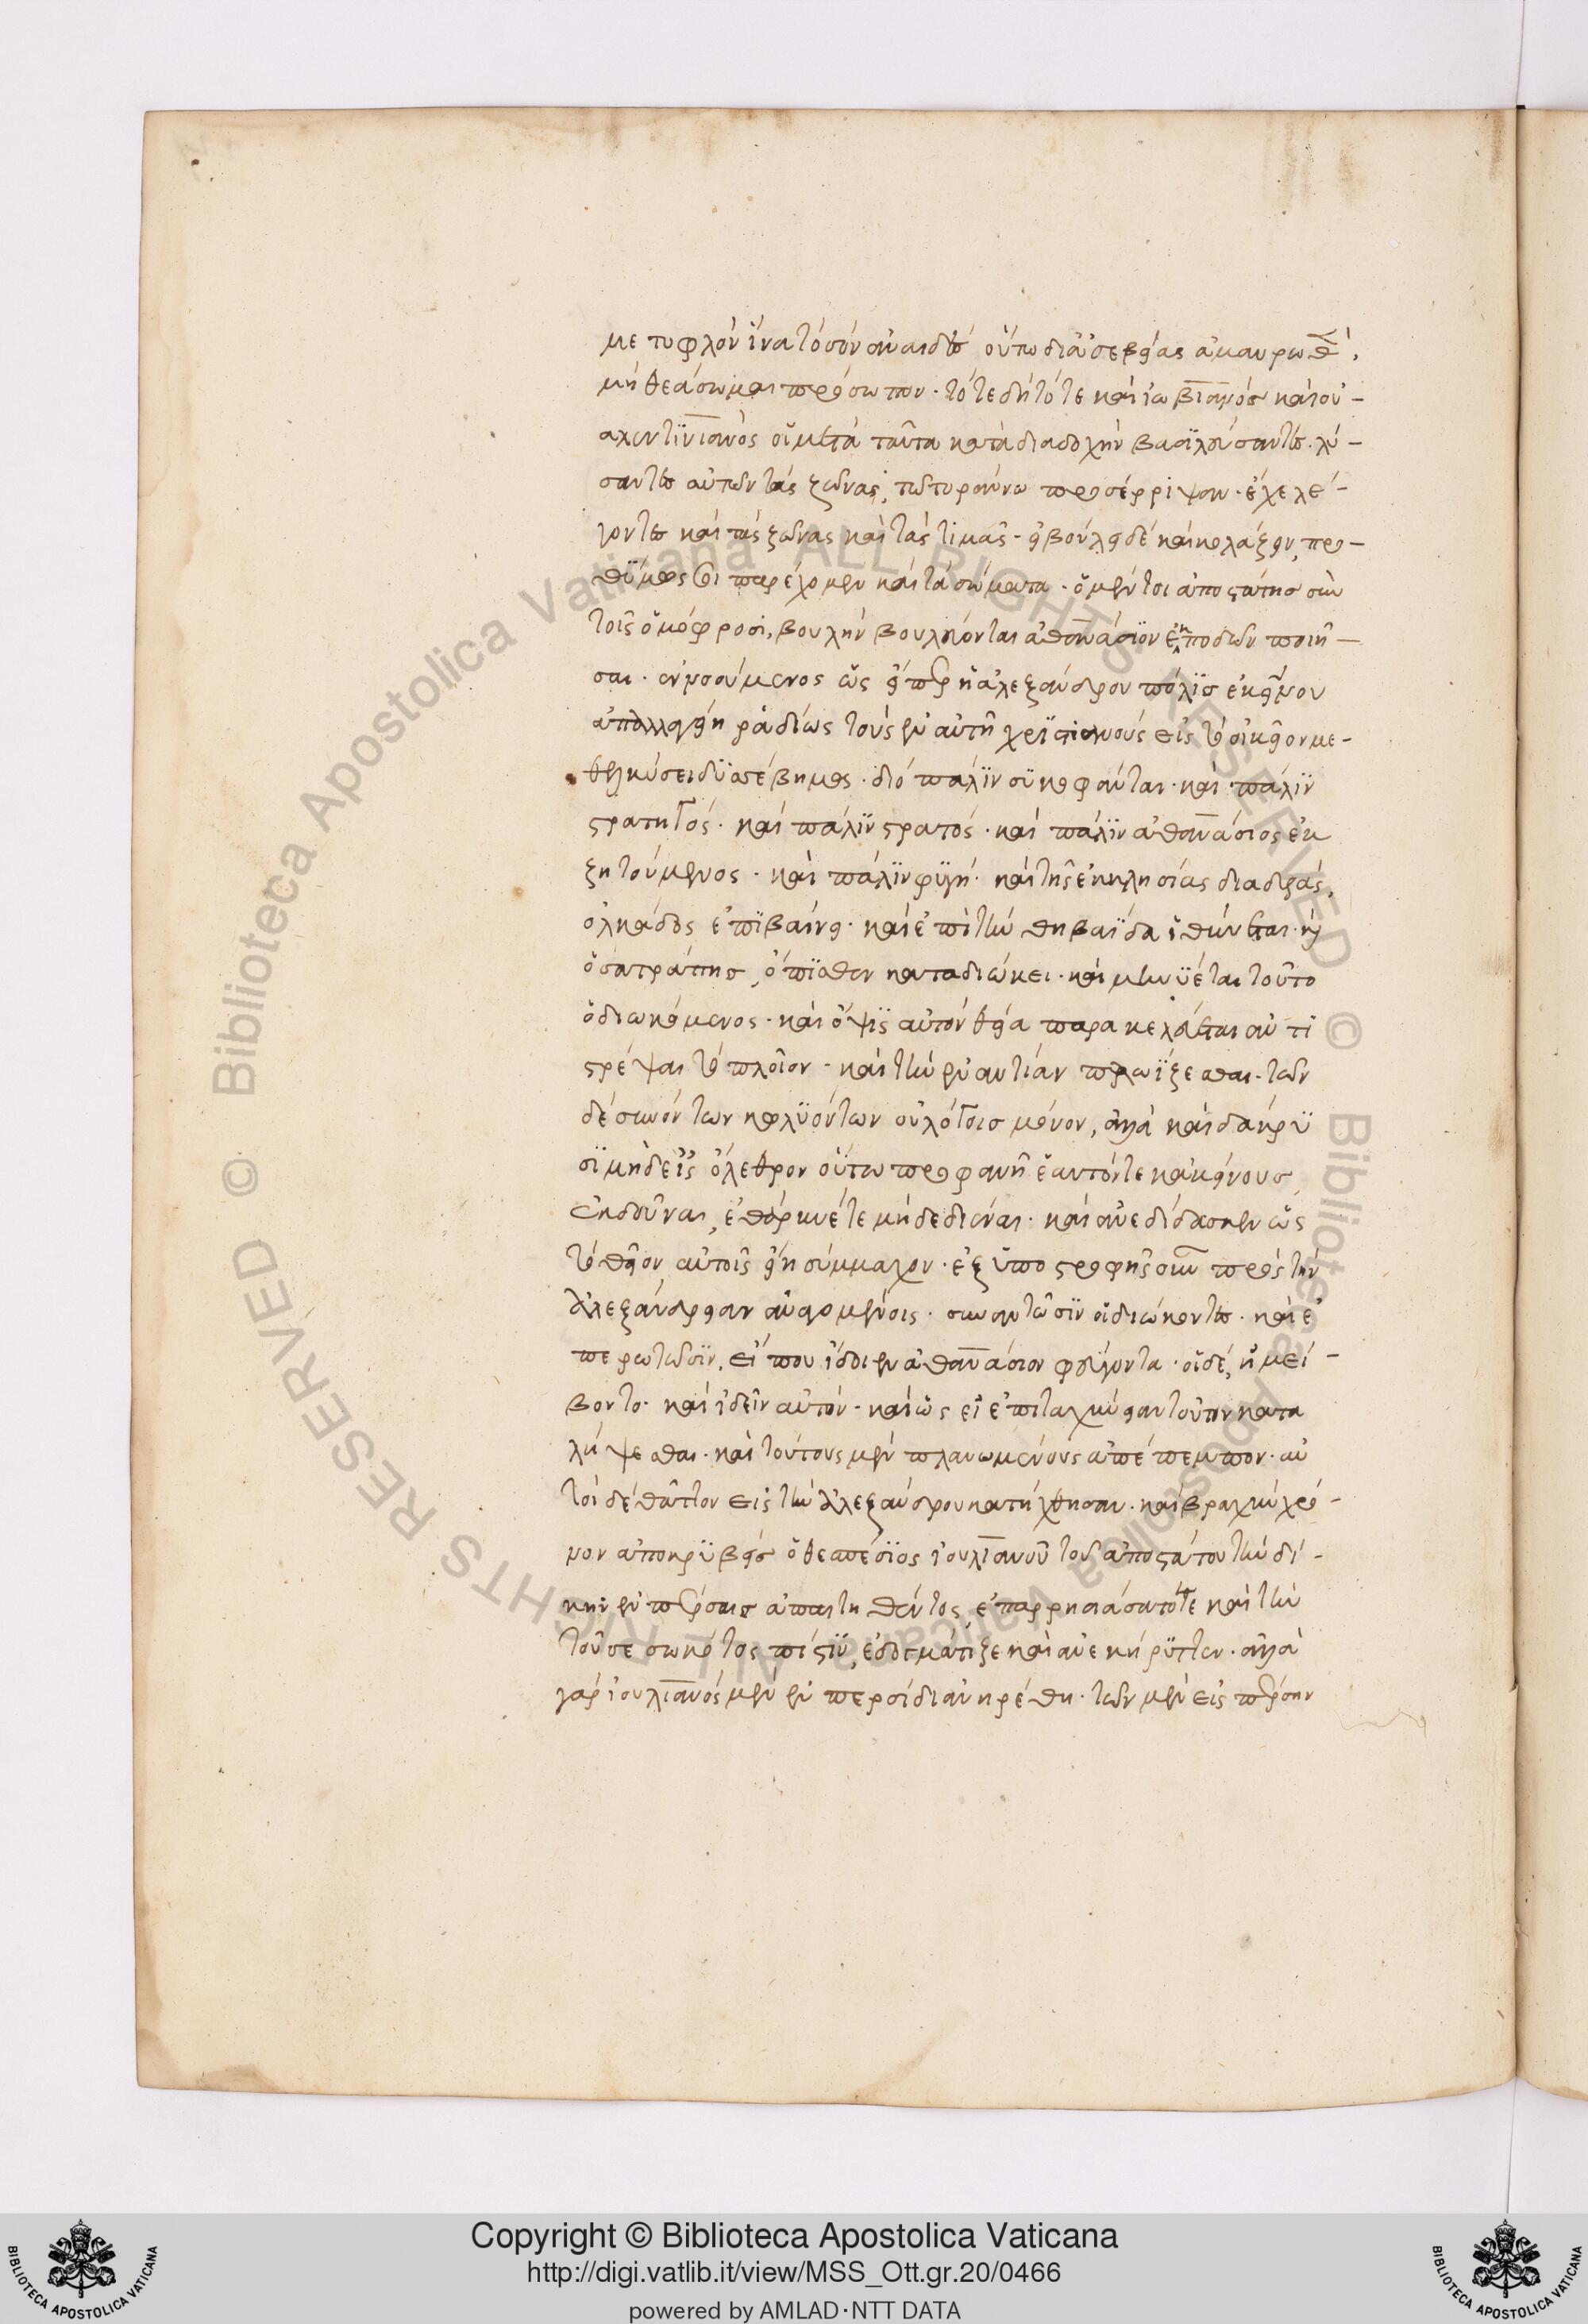 με τυφλὸν ἵνα τὸ σὸν ἀναιδὲς οὕτω δι' ἀσεβείας ἀμαυρωθὲν,
μὴ θεάσωμαι πρόσωπον. τότε δὴ τότε καὶ ἰωβιανὸς καὶ οὐ-
αλεντϊνιανὸς οἱ μετὰ ταῦτα κατὰ διαδοχὴν βασϊλεύσαντες. λύ-
σαντες αὐτῶν τὰς ζώνας, τῶ τυράννω προσέρριψαν. ἔχε λέ-
γοντες καὶ τὰς ζώνας καὶ τὰς τιμάς. εἰ βούλει δὲ καὶ κολάζειν, προ-
θύμως σοι παρέχομεν καὶ τὰ σώματα. ὁ μέντοι ἀποστάτης σὺν
τοῖς ὁμόφροσι, βουλὴν βουλεύονται ἀθανάσϊον ἐκποδὼν ποιῆ-
σαι. ἐννοούμενος ὡς εἴπερ ἡ ἀλεξάνδρου πόλϊς ἐκείνου
ἀπαλλαγείη ῥαδίως τοὺς ἐν αὐτῆ χρϊστιανοὺς εἰς τὸ οἰκεῖον με-
θελκύσει δϋσσέβημας. διὸ πάλϊν συκοφάνται. καὶ πάλϊν
στρατηγός. καὶ πάλϊν στρατός. καὶ πάλϊν ἀθανάσιος ἐκ
ζητούμενος. καὶ πάλϊν φϋγή. καὶ τῆς ἐκκλησίας διαδρὰς,
ὁλκάδος ἐπϊβαίνει. καὶ ἐπὶ τὴν θηβαΐδα ἰθύνεται. καὶ
ὁ σατράπης, ὄπϊσθεν καταδιώκει. καὶ μηνϋέται τοῦτο
ὁ διωκόμενος. καὶ ὄψϊς αὐτὸν θεία παρακελεύεται ἀντι
στρέψαι τὸ πλοῖον. καὶ τὴν ἐναντίαν πλωΐζεσθαι. τῶν
δὲ συνόντων κωλϋόντων οὐ λόγοις μόνον, ἀλλὰ καὶ δάκρϋ
σϊ μηδεὶς ὄλεθρον οὕτω προφανῆ ἑαυτόν τε κἀκείνους
ἐκδοῦναι, ἐθάρρυνέ τε μὴ δεδιέναι. καὶ ἀνεδίδασκεν ὡς
τὸ θεῖον αὐτοῖς εἴη σύμμαχον. ἐξ ὑποστροφῆς οὖν πρὸς τὴν
ἀλεξάνδρειαν ἀναγομένοις. συναντῶσϊν οἱ διώκοντες. καὶ ἐ
περωτῶσϊν, εἴ που ἴδοιεν ἀθανάσιον φεύγοντα. οἱ δὲ, ἠμεί-
βοντο. καὶ ἰδεῖν αὐτὸν. καὶ ὡς εἰ ἐπιταχύνειαν τοῦτον κατα
λήψεσθαι. καὶ τούτους μὲν πλανωμένους ἀπέπεμπον. αὐ
τοὶ δὲ θᾶττον εἰς τὴν ἀλεξάνδρου κατήχθησαν. καὶ βραχὺν χρό-
νον ἀποκρϋβεὶς ὁ θεσπέσϊος ἰουλιανοῦ τοῦ ἀποστάτου τὴν δί-
κην ἐν πέρσαις ἀπαιτηθέντος, ἐπαρρησιάσατό τε καὶ τὴν
τοῦ σεσωκότος πίστϊν, ἐδογμάτιζε καὶ ἀνεκήρϋττεν. ἀλλὰ
γὰρ ἰουλιανὸς μὲν ἐν περσίδι ἀνηρέθη. τῶν μὲν εἰς πέρσην
Copyright © Biblioteca Apostolica Vaticana
http://digi.vatlib.it/view/MSS_Ott.gr.20/0466
powered by AMLAD·NTT DATA